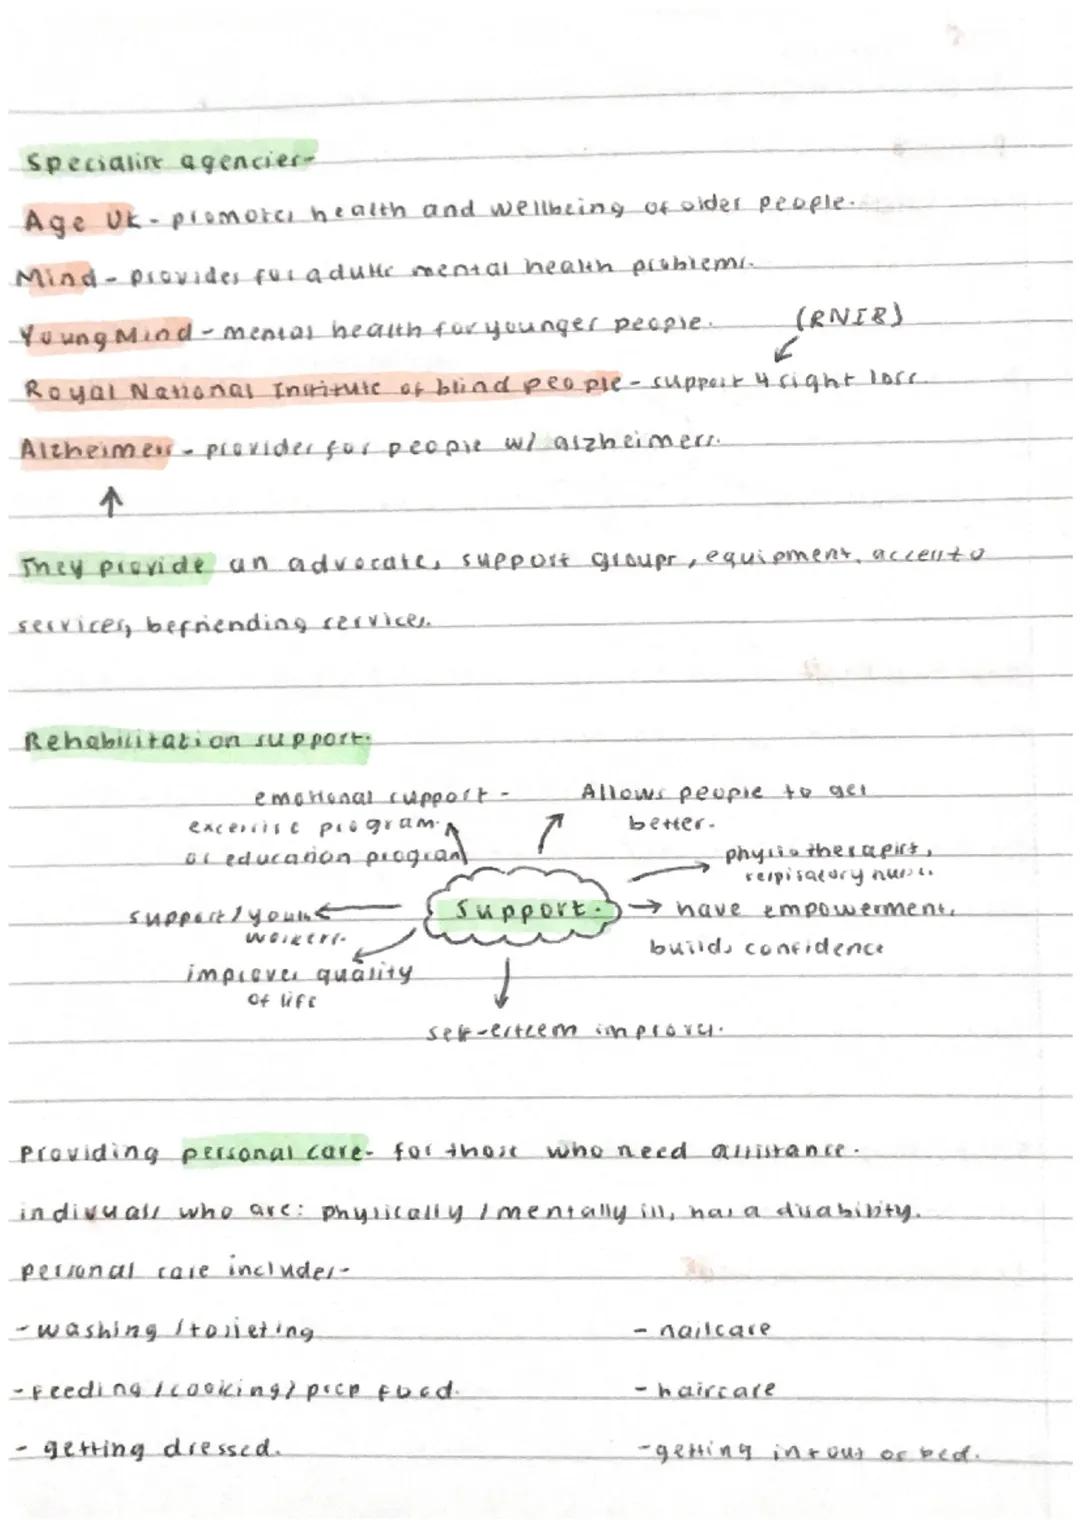 Specialist agencies-
Age UK - promotes health and wellbeing of older people.
Mind - provides for adults mental health problems.
Young Mind - mental health for younger people. (RNIB)
Royal National Institute of blind people - support 4 sight loss.
Alzheimers - provides for people w/ alzheimers.
They provide an advocate, support groups, equipment, access to
services, befriending services.
Rehabilitation support.
emotional support -
excersise program.
or education program
Allows people to get
better.
physiotherapist,
respisatory nurse.
support / youth
workers.
Support.
have empowerment,
builds confidence
improves quality
of life
self-esteem improves.
Providing personal care- for those who need assistance.
indivuals who are: physically / mentally ill, has a disability.
personal care includes-
- washing / toileting
- feeding / cooking / prep food.
- getting dressed.
- nailcare
- haircare
- getting in + out of bed.